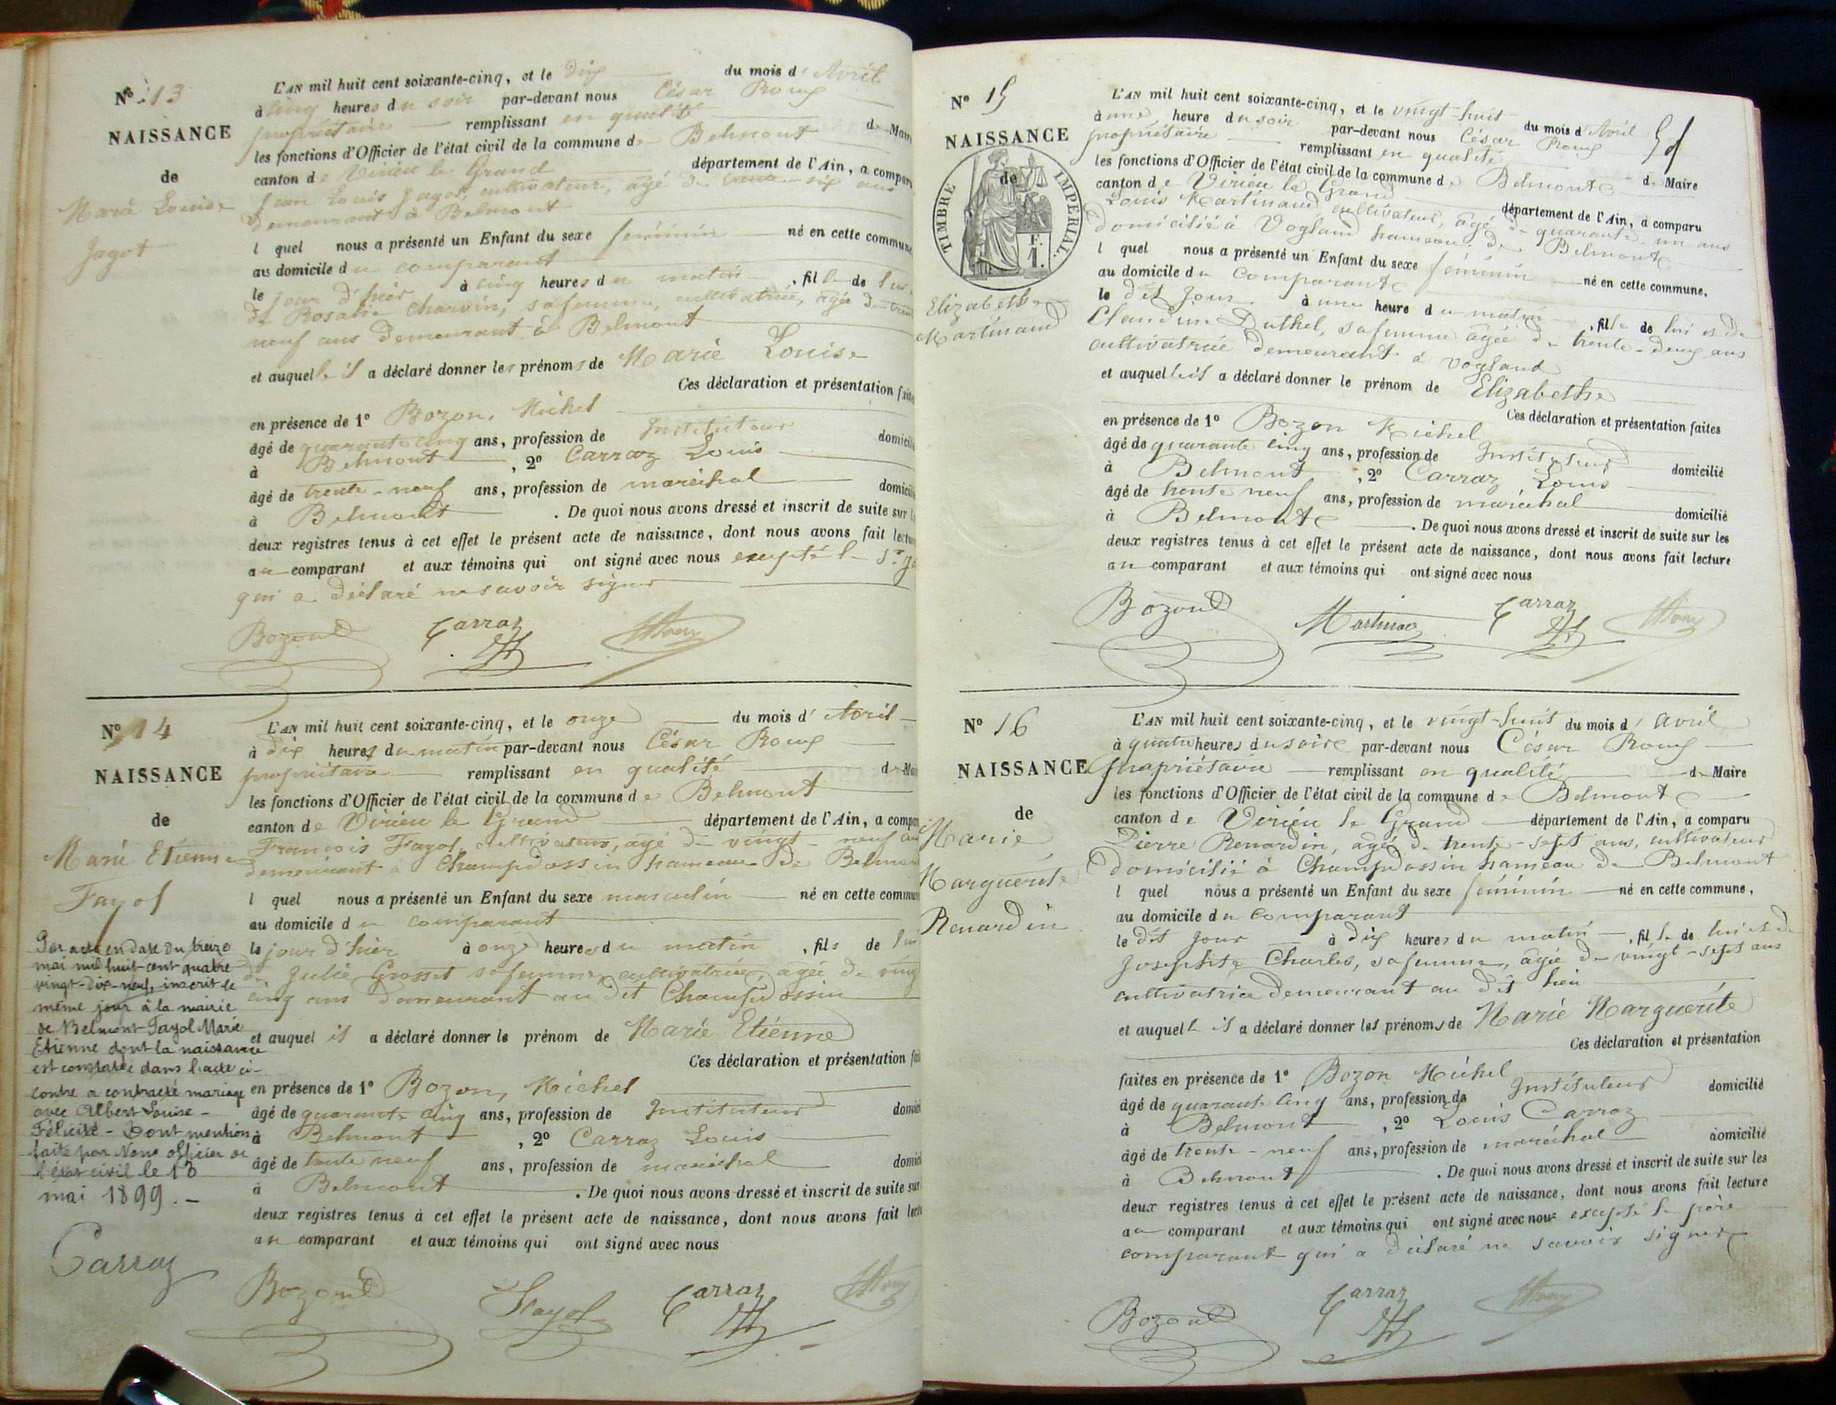 N° 13
NAISSANCE
de
Marie Louise
Jagot
L'AN mil huit cent soixante-cinq, et le dix du mois d' Avril
à cinq heures du soir par-devant nous César Roux
propriétaire remplissant en qualité de Maire
les fonctions d'Officier de l'état civil de la commune de Belmont
canton de Virieu le Grand département de l'Ain, a comparu
Jean Louis Jagot, cultivateur, âgé de trente-six ans
demeurant à Belmont
l quel nous a présenté un Enfant du sexe féminin né en cette commune
au domicile du comparant
le jour d'hier à cinq heures du matin, fille de lui
de Rosalie Charvin, sa femme, cultivatrice, âgée de trente
neuf ans demeurant à Belmont
et auquelle il a déclaré donner les prénoms de Marie Louise
Ces déclaration et présentation faites
en présence de 1° Bozon, Michel
âgé de quarante cinq ans, profession de Instituteur domicilié
à Belmont, 2° Carraz Louis
âgé de trente-neuf ans, profession de maréchal domicilié
à Belmont. De quoi nous avons dressé et inscrit de suite sur les
deux registres tenus à cet effet le présent acte de naissance, dont nous avons fait lecture
au comparant et aux témoins qui ont signé avec nous excepté le Sr Ja
qui a déclaré ne savoir signer
Bozon Carraz
N° 14
NAISSANCE
de
Marie Etienne
Fayol
L'AN mil huit cent soixante-cinq, et le onze du mois d' Avril
à dix heures du matin par-devant nous César Roux
propriétaire remplissant en qualité de Maire
les fonctions d'Officier de l'état civil de la commune de Belmont
canton de Virieu le Grand département de l'Ain, a comparu
François Fayol, cultivateur, âgé de vingt-neuf ans
demeurant à Champdossin hameau de Belmont
l quel nous a présenté un Enfant du sexe masculin né en cette commune
au domicile du comparant
le jour d'hier à onze heures du matin, fils de lui
de Julie Grosset sa femme, cultivatrice, âgée de vingt
cinq ans demeurant au dit Champdossin
et auquel il a déclaré donner le prénom de Marie Etienne
Ces déclaration et présentation faites
en présence de 1° Bozon, Michel
âgé de quarante cinq ans, profession de Instituteur domicilié
à Belmont, 2° Carraz Louis
âgé de trente neuf ans, profession de maréchal domicilié
à Belmont. De quoi nous avons dressé et inscrit de suite sur
deux registres tenus à cet effet le présent acte de naissance, dont nous avons fait lecture
au comparant et aux témoins qui ont signé avec nous
Bozon Fayol Carraz
Par acte en date du treize
mai mil huit cent quatre
vingt-dix-neuf, inscrit le
même jour à la mairie
de Belmont Fayol Marie
Etienne dont la naissance
est constatée dans l'acte ci-
contre a contracté mariage
avec Albert Louise-
Félicité - Dont mention
faite par Nous officier de
l'état civil le 13
mai 1899. -
Carraz
N° 15
NAISSANCE
de
TIMBRE IMPERIAL.
F.
1.
Elizabethe
Martinand
L'AN mil huit cent soixante-cinq, et le vingt-huit du mois d' Avril
à une heure du soir par-devant nous César Roux
propriétaire remplissant en qualité de Maire
les fonctions d'Officier de l'état civil de la commune de Belmont
canton de Virieu le Grand département de l'Ain, a comparu
Louis Martinand cultivateur, âgé de quarante-un ans
domicilié à Vogland hameau de Belmont
l quel nous a présenté un Enfant du sexe féminin né en cette commune,
au domicile du comparant
le dit jour à une heure du matin, fille de lui et de
Claudine Duthel, sa femme âgée de trente-deux ans
cultivatrice demeurant à Vogland
et auquelle il a déclaré donner le prénom de Elizabethe
Ces déclaration et présentation faites
en présence de 1° Bozon Michel
âgé de quarante cinq ans, profession de Instituteur domicilié
à Belmont, 2° Carraz Louis
âgé de trente neuf ans, profession de maréchal domicilié
à Belmont. De quoi nous avons dressé et inscrit de suite sur les
deux registres tenus à cet effet le présent acte de naissance, dont nous avons fait lecture
au comparant et aux témoins qui ont signé avec nous
Bozon Martinand Carraz
N° 16
NAISSANCE
de
Marie
Marguerite
Renardin
L'AN mil huit cent soixante-cinq, et le vingt-huit du mois d' avril
à quatre heures du soir par-devant nous César Roux
propriétaire remplissant en qualité de Maire
les fonctions d'Officier de l'état civil de la commune de Belmont
canton de Virieu le Grand département de l'Ain, a comparu
Pierre Renardin, âgé de trente-sept ans, cultivateur
domicilié à Champdossin hameau de Belmont
l quel nous a présenté un Enfant du sexe féminin né en cette commune,
au domicile du comparant
le dit jour à dix heures du matin, fille de lui et de
Josephte Charles, sa femme, âgée de vingt-sept ans
cultivatrice demeurant au dit lieu
et auquelle il a déclaré donner les prénoms de Marie Marguerite
Ces déclaration et présentation
faites en présence de 1° Bozon Michel
âgé de quarante cinq ans, profession de Instituteur domicilié
à Belmont, 2° Louis Carraz
âgé de trente-neuf ans, profession de maréchal domicilié
à Belmont. De quoi nous avons dressé et inscrit de suite sur les
deux registres tenus à cet effet le présent acte de naissance, dont nous avons fait lecture
au comparant et aux témoins qui ont signé avec nous excepté le père
comparant qui a déclaré ne savoir signer
Bozon Carraz